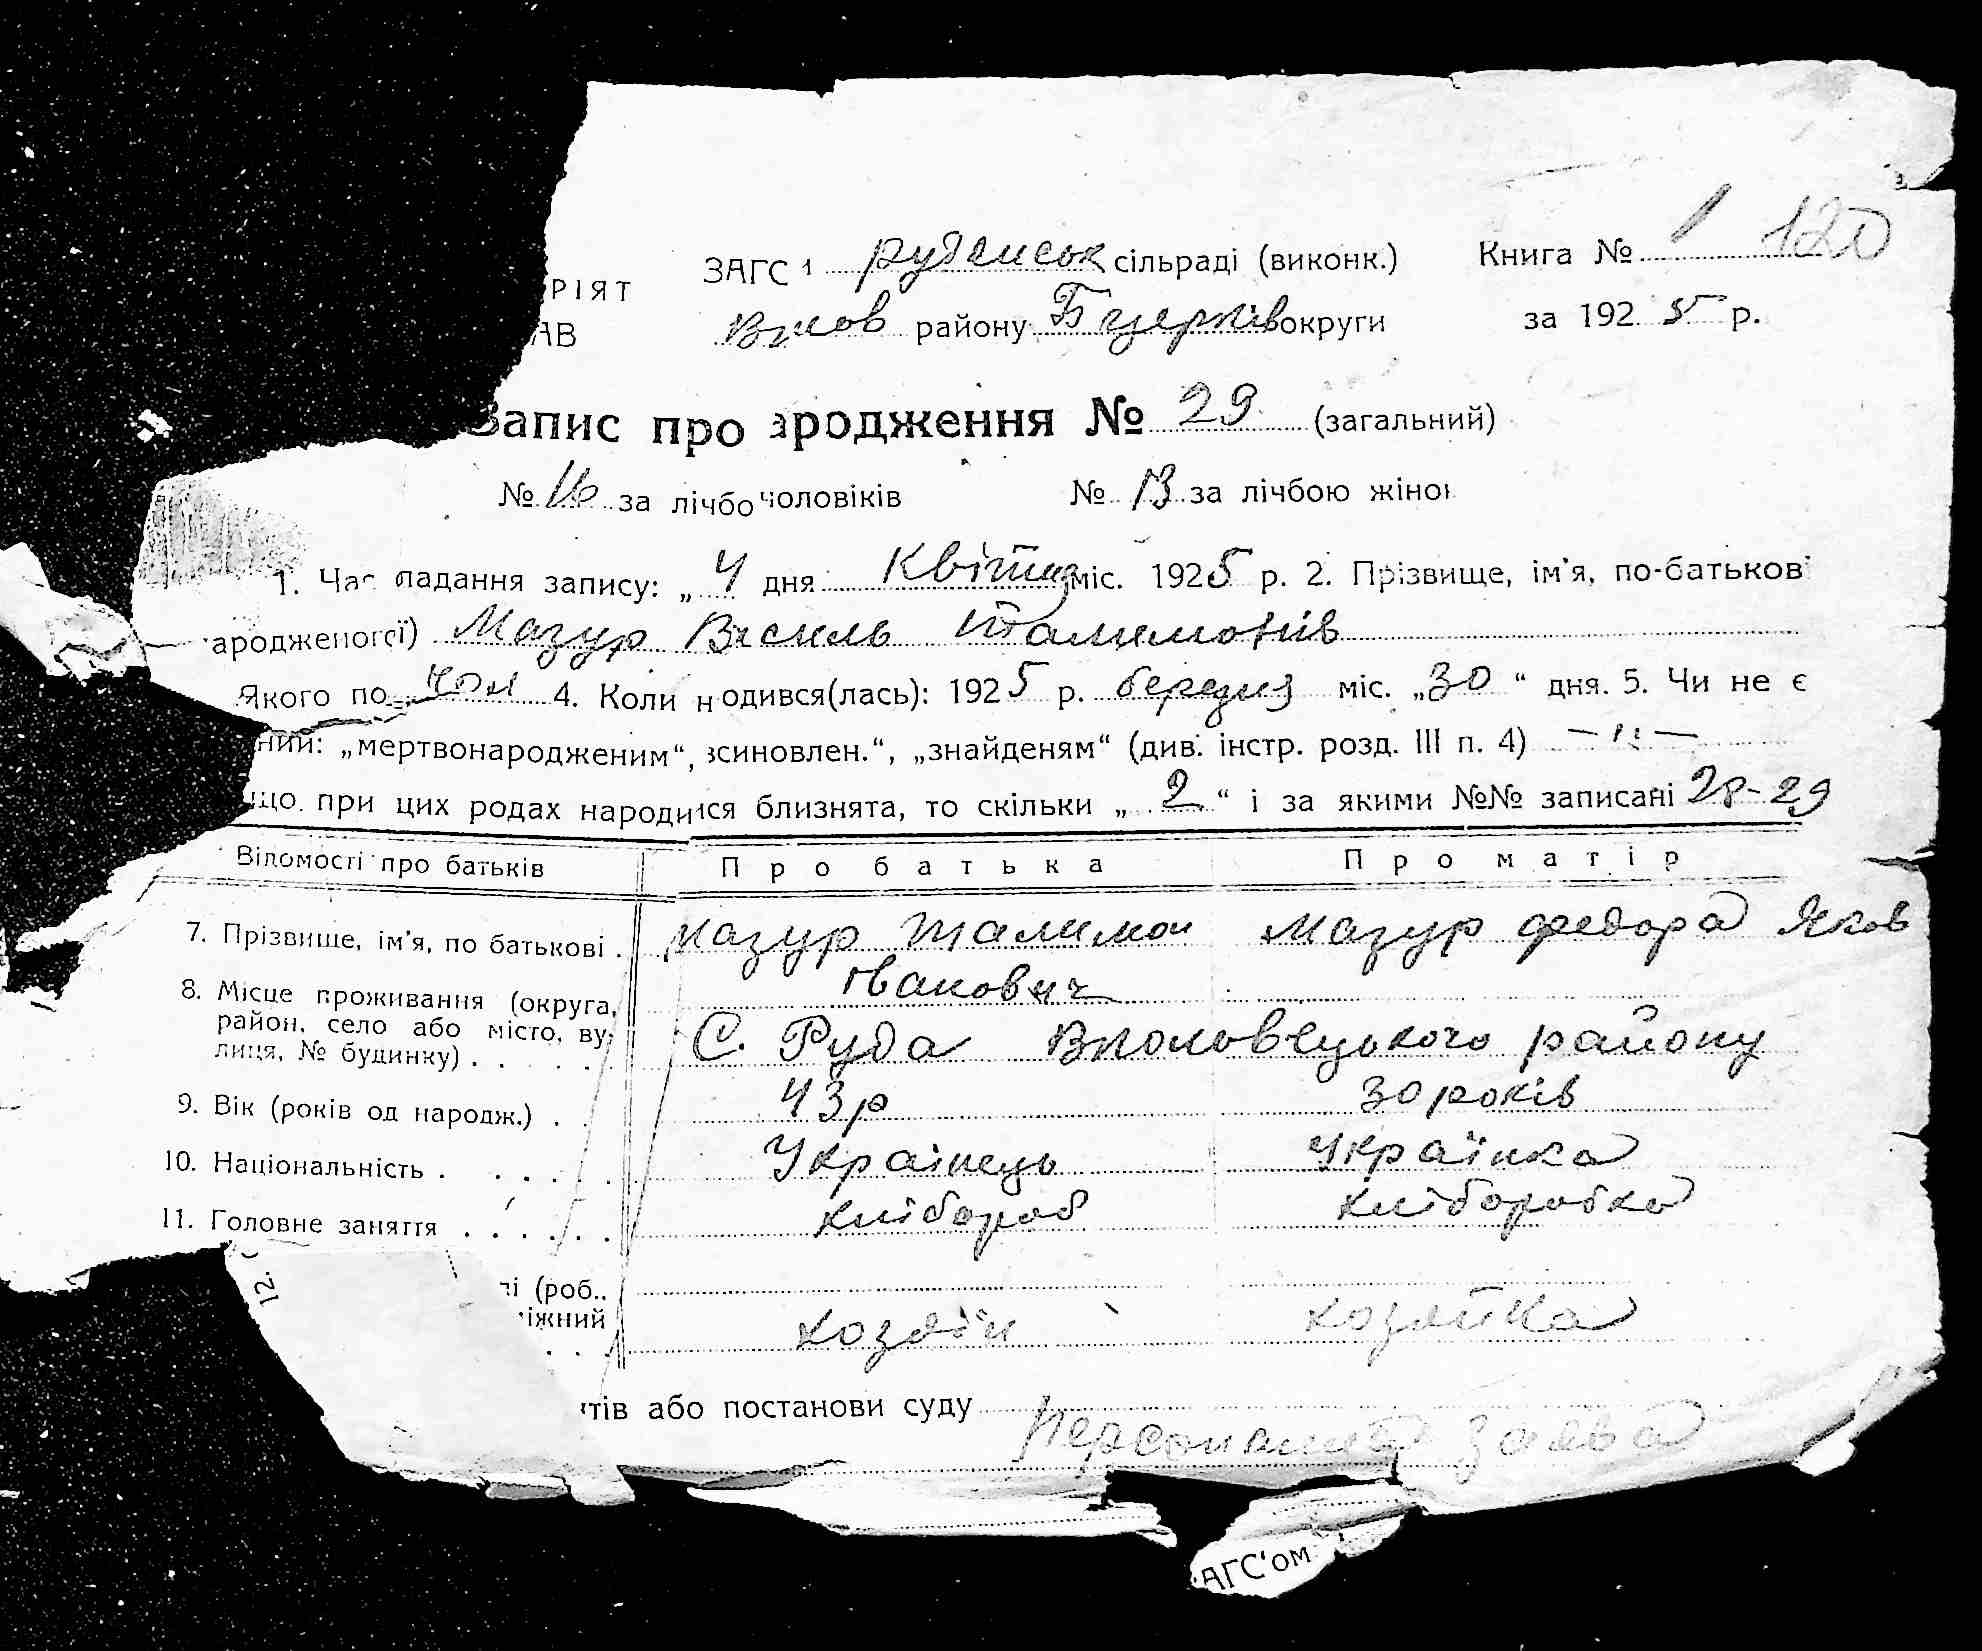 ЗАГС 1 рудянськ сільраді (виконк.) Книга № 1 120
РІЯТ
АВ район у Б церків округи за 1925 р.
Запис про зродження № 29 (загальний)
№ 16 за лічбо чоловіків № 13 за лічбою жіно
1. Час падання запису: „4 дня Квітня міс. 1925 р. 2. Прізвище, ім'я, по-батькові
ародженого(ї) Мазур Василь Талимонів
Якого по чол 4. Коли н одився(лась): 1925 р. березня міс. „30“ дня. 5. Чи не є
ний: „мертвонародженим“, всиновлен.“, „знайденям“ (див. інстр. розд. III п. 4) — „ —
що при цих родах народися близнята, то скільки „ 2 “ і за якими №№ записані 28-29
Відомості про батьків Про батька Про матір
7. Прізвище, ім'я, по батькові . Мазур Талимон Мазур федора Яков
Іванович
8. Місце проживання (округа,
район, село або місто, ву-
лиця, № будинку) . . . . . С. Руда Володовецького району
9. Вік (років од народж.) . . 43р 30 років
10. Національність . . . . . Українець Українка
11. Головне заняття . . . . . . хлібороб хліборобка
12.
і (роб.,
іжний
. . . хозяїн хозяйка
тів або постанови суду персональна заява
АГС'ом